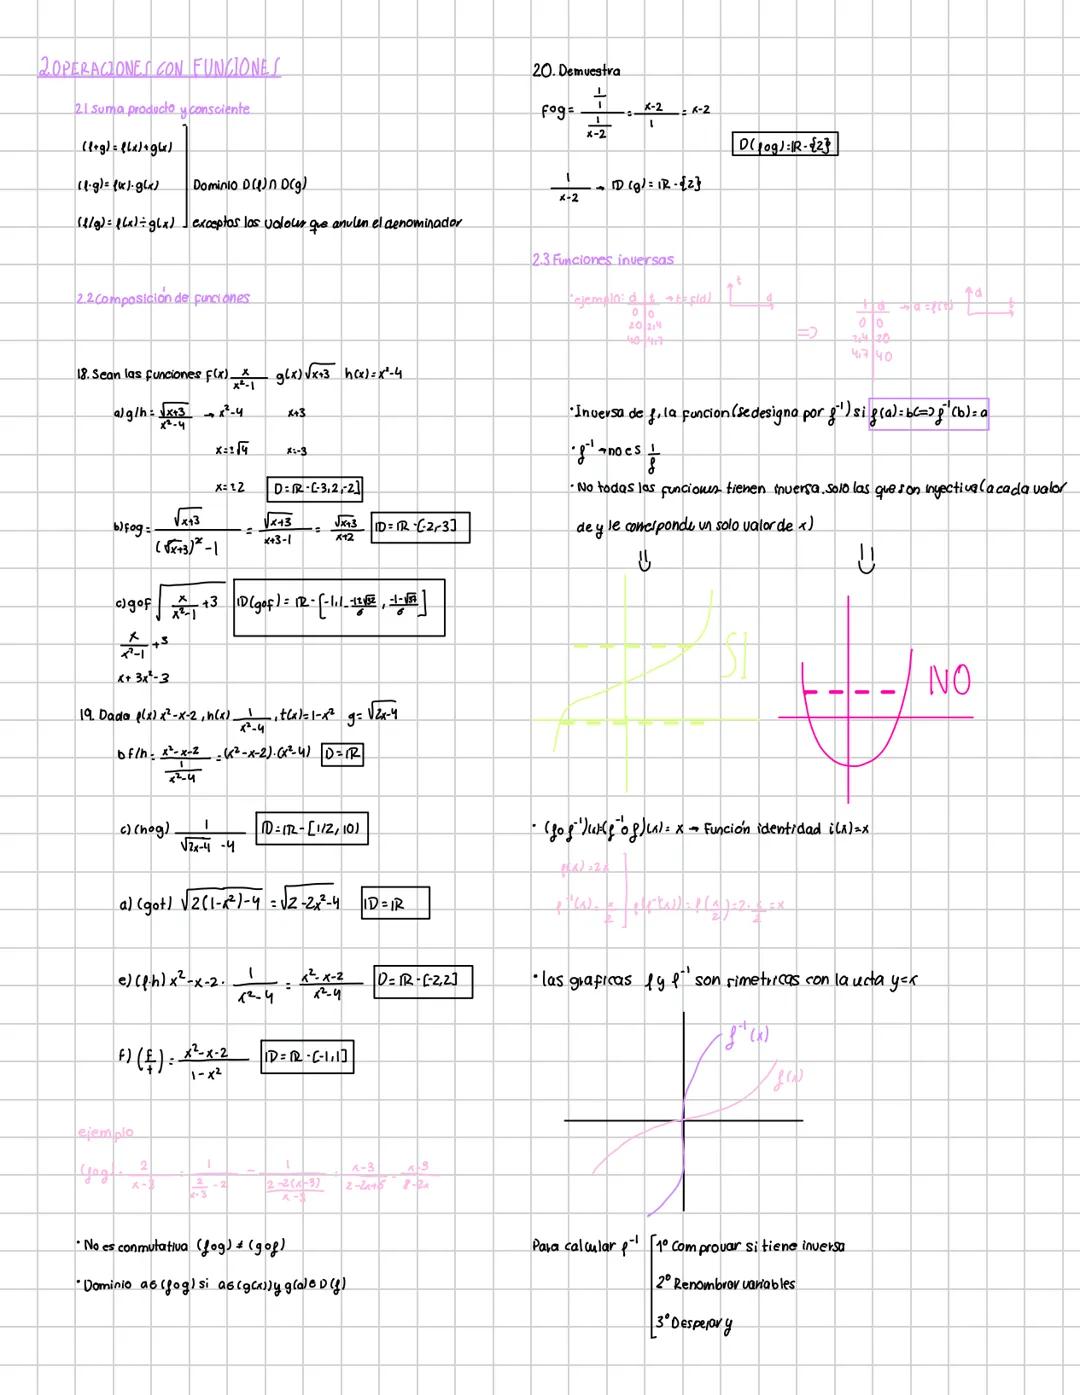 2.OPERACIONES CON FUNCIONES
2.1 Suma producto y consciente
(f+g) = f(x)+g(x)
(f·g)= f(x)·g(x) Dominio D(f)∩D(g)
(f/g)= f(x)÷g(x) exceptos los valores que anulen el denominador
2.2 Composición de funciones
18. Sean las funciones f(x) x/x²-1 g(x)√x+3 h(x)=x²-4
a) g/h = √x+3/x²-4 → x²-4 x+3
x=±√4 x=-3
x=±2 D=R-[-3,2,-2]
b) fog = √x+3/(√x+3)²-1 = √x+3/x+3-1 = √x+3/x+2 D=R-[-2,-3]
c) gof √x/x²-1 +3 D(gof)= R-[-1,1,
x/x²-1 +3
x+3x²-3
19. Dada f(x) x²-x-2, h(x) 1/x²-4, t(x)=1-x² g=√2x-4
b f/h = x²-x-2/1/x²-4 = (x²-x-2)·(x²-4) D=R
c) (hog) 1/√2x-4 -4 D=R-[1/2,10)
a) (got) √2(1-x²)-4 = √2-2x²-4 D=R
e) (f·h) x²-x-2· 1/x²-4 = x²-x-2/x²-4 D=R-[-2,2]
f) (f/t) = x²-x-2/1-x² D=R-[-1,1]
ejemplo
(fog)· 2/x-3 = 1/2/x-3 -2 - 1/2-2(x-3)/x-3 · x-3/2-2x+6 - x-3/8-2x
· No es conmutativa (fog) ≠ (gof)
· Dominio a∈(fog) si a∈(g(x)) y g(a)∈D(f)
20. Demuestra
fog = 1/1/1/x-2 = x-2/1 = x-2
D(fog)=R-{2}
1/x-2 → D(g)=R-{2}
2.3 Funciones inversas
·ejemplo: d t → t=f(d) t d
0 0
20 2,4
40 4,7
=>
t d → d=f(t) d t
0 0
2,4 20
4,7 40
· Inversa de f, la funcion (se designa por f⁻¹) si f(a)=b<=>f⁻¹(b)=a
· f⁻¹ → no es 1/f
· No todas las funciones tienen inversa. Solo las que son inyectiva (a cada valor
de y le corresponde un solo valor de x)
SI
NO
· (fof⁻¹)(x)=(f⁻¹of)(x)= x → Función identidad i(x)=x
f(x)=2x
f⁻¹(x)= x/2 f(f⁻¹(x))=f(x/2)=2·x/2=x
· las graficas f y f⁻¹ son simetricas con la recta y=x
f⁻¹(x)
f(x)
Para calcular f⁻¹ 1º Comprovar si tiene inversa
2º Renombrar variables
3º Despejar y